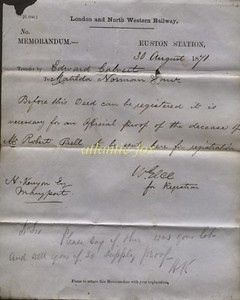 London and North Western Railway.
No.
MEMORANDUM.—
EUSTON STATION,
30 August 1871
Transfer by Edward Calvert
to Matilda Norman
Before this Deed can be registered it is
necessary for an Official Proof of the decease of
Mr Robert to be sent here for registration
H. Kenyon Esq
for Registrar
Please say if this was your
and will you if so supply proof
HK
Please to return this Memorandum with your explanation.